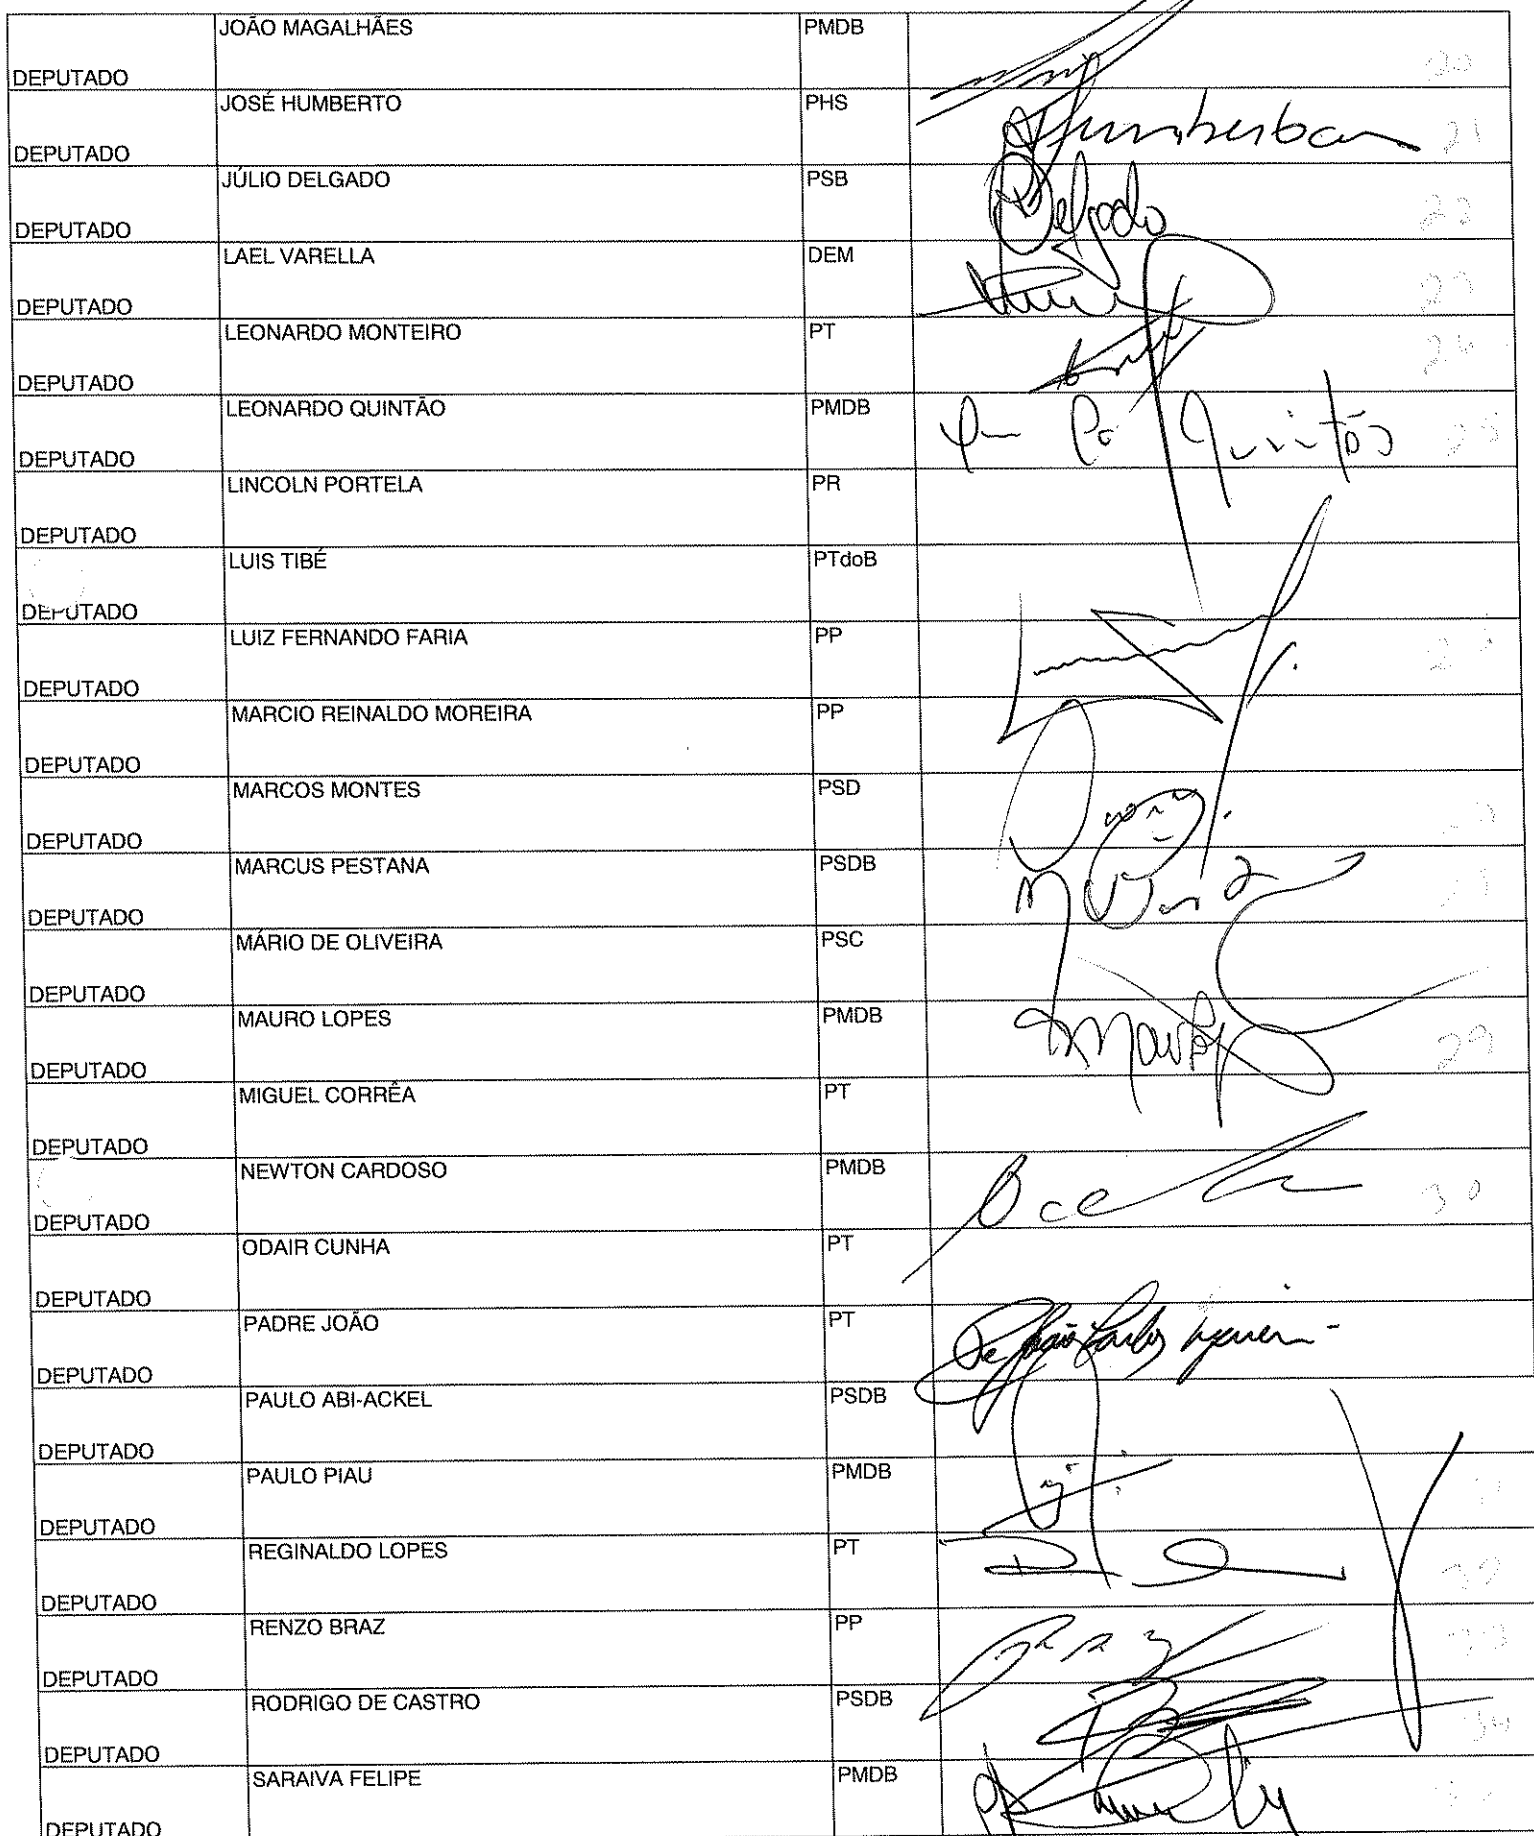 JOÃO MAGALHÃES PMDB
DEPUTADO 20
JOSÉ HUMBERTO PHS
DEPUTADO 21
JÚLIO DELGADO PSB Delgado
DEPUTADO 22
LAEL VARELLA DEM
DEPUTADO 23
LEONARDO MONTEIRO PT
DEPUTADO 24
LEONARDO QUINTÃO PMDB Quintão
DEPUTADO 25
LINCOLN PORTELA PR
DEPUTADO
LUIS TIBÉ PTdoB
DEPUTADO
LUIZ FERNANDO FARIA PP
DEPUTADO
MARCIO REINALDO MOREIRA PP
DEPUTADO
MARCOS MONTES PSD
DEPUTADO
MARCUS PESTANA PSDB
DEPUTADO
MÁRIO DE OLIVEIRA PSC
DEPUTADO
MAURO LOPES PMDB
DEPUTADO 29
MIGUEL CORRÊA PT
DEPUTADO
NEWTON CARDOSO PMDB
DEPUTADO 30
ODAIR CUNHA PT
DEPUTADO
PADRE JOÃO PT Pe João Carlos
DEPUTADO
PAULO ABI-ACKEL PSDB
DEPUTADO
PAULO PIAU PMDB
DEPUTADO
REGINALDO LOPES PT
DEPUTADO 32
RENZO BRAZ PP
DEPUTADO 33
RODRIGO DE CASTRO PSDB
DEPUTADO 34
SARAIVA FELIPE PMDB
DEPUTADO